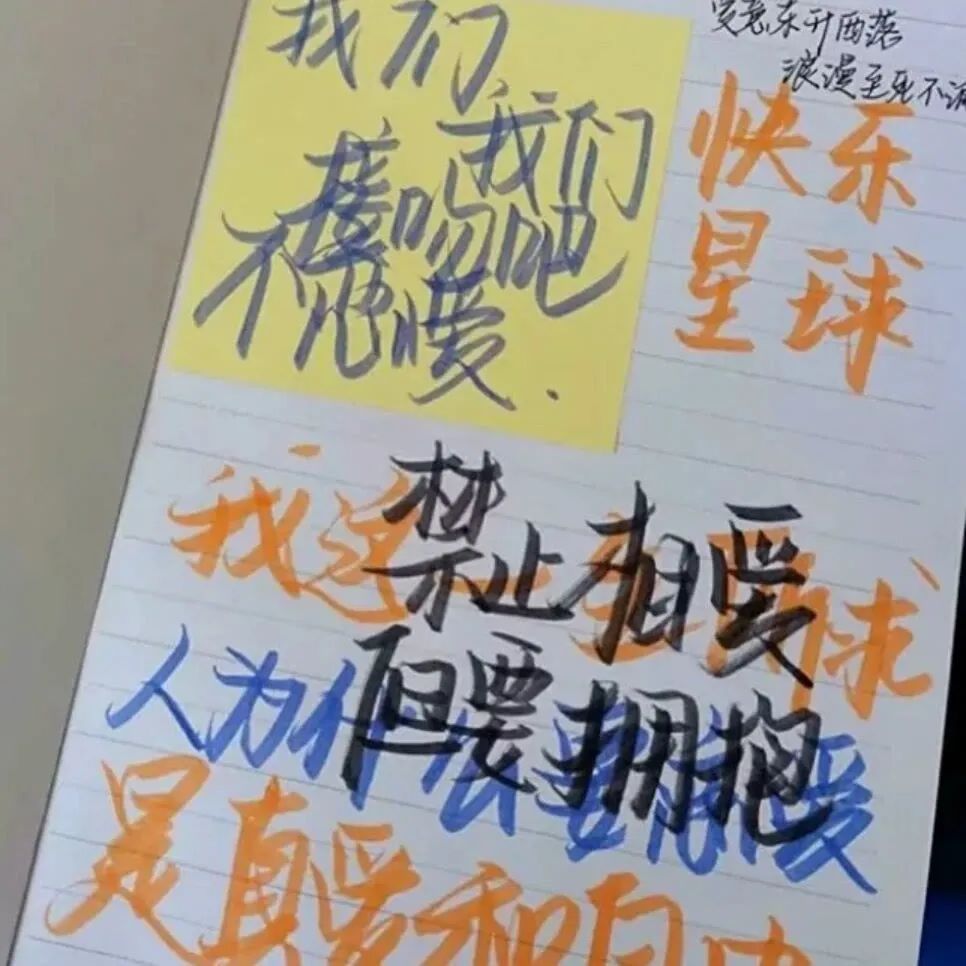 我们
我们
接吻吧
不恋爱.
爱意东升西落
浪漫至死不
快乐
星球
禁止相爱
但要拥抱
我这一生所求
人为什么要恋爱
是真爱和自由